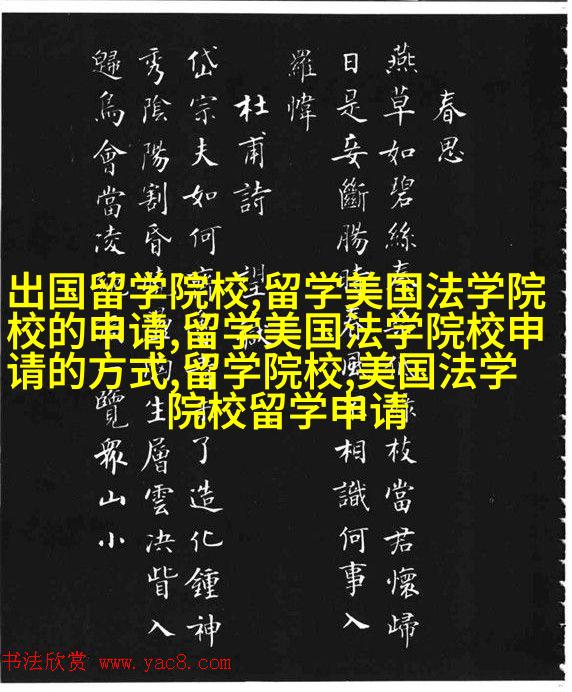 春思
燕草如碧絲秦枝當君懷歸
日是妾斷腸春風相識何事入
羅幃
杜甫詩 望
岱宗夫如何了造化鍾神
秀陰陽割昏生層雲決眥入
歸鳥會當凌覽眾山小
出国留学院校,留学美国法学院
校的申请,留学美国法学院校申
请的方式,留学院校,美国法学
院校留学申请
书法欣赏 www.yac8.com